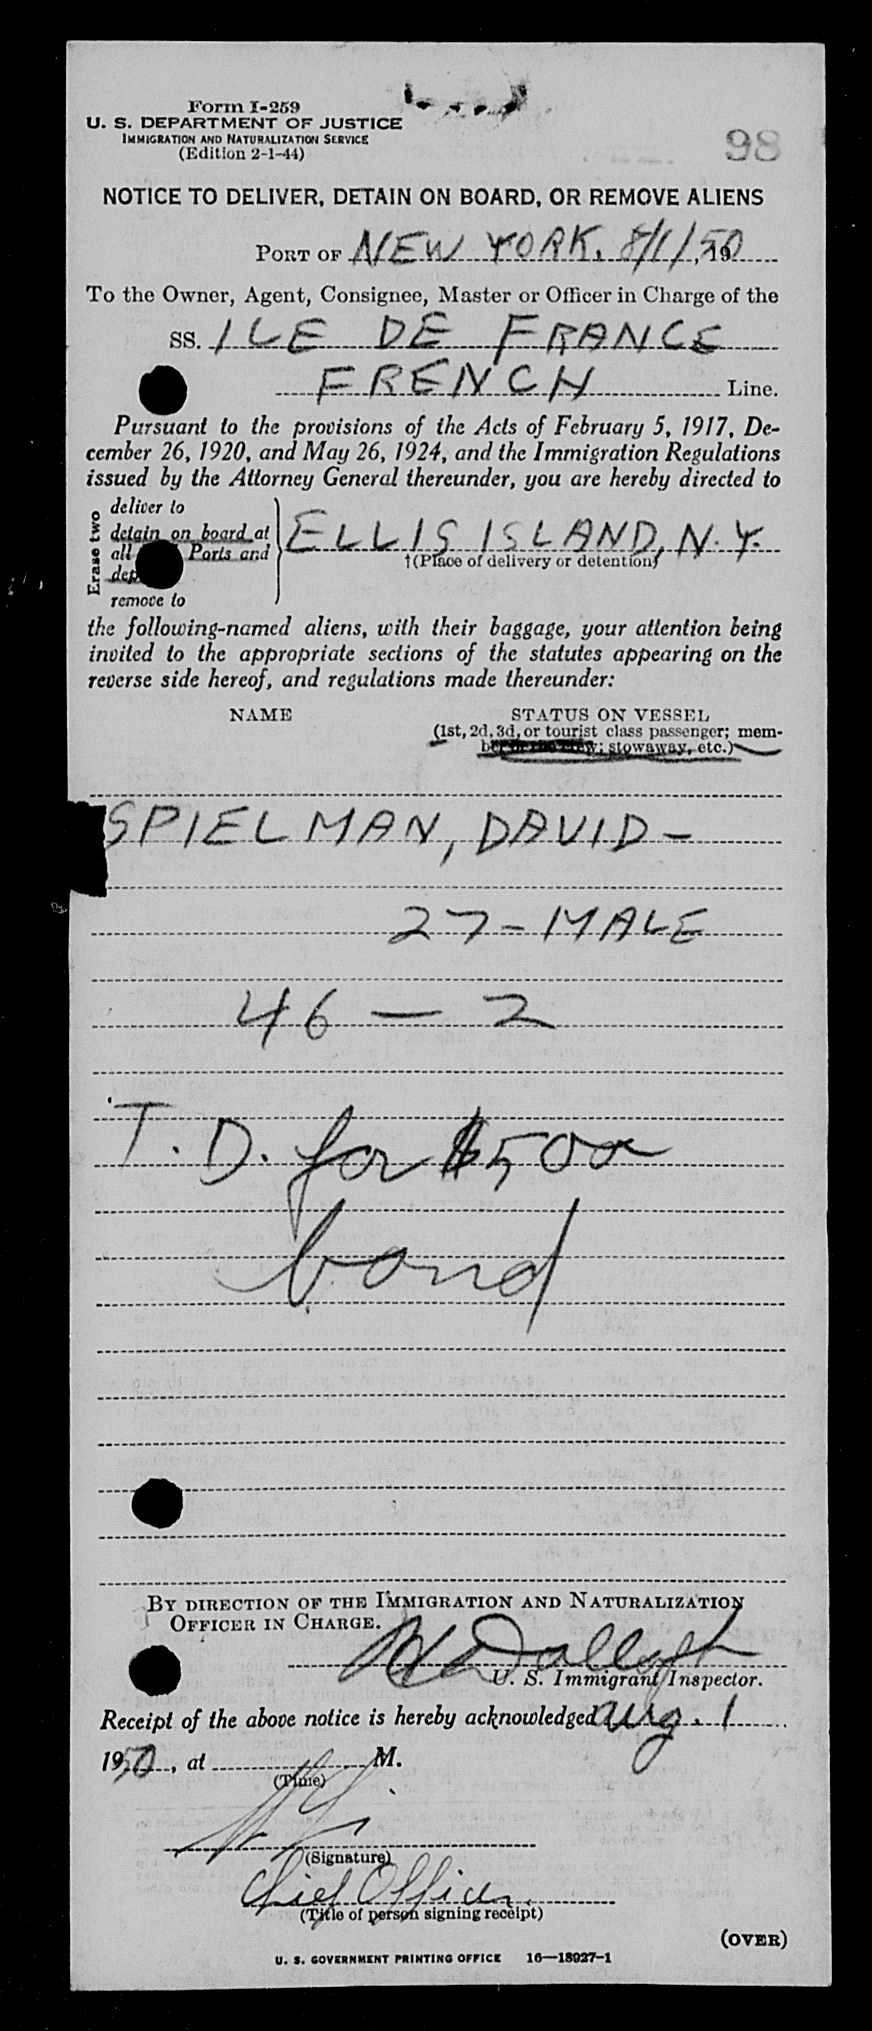 Form I-259
U. S. DEPARTMENT OF JUSTICE
IMMIGRATION AND NATURALIZATION SERVICE
(Edition 2-1-44)
98
NOTICE TO DELIVER, DETAIN ON BOARD, OR REMOVE ALIENS
PORT OF NEW YORK. 8/1/50, 19
To the Owner, Agent, Consignee, Master or Officer in Charge of the
SS. ILE DE FRANCE
FRENCH Line.
Pursuant to the provisions of the Acts of February 5, 1917, De-
cember 26, 1920, and May 26, 1924, and the Immigration Regulations
issued by the Attorney General thereunder, you are hereby directed to
Erase two
deliver to
detain on board at
all Ports and
remove to
ELLIS ISLAND, N.Y.
†(Place of delivery or detention)
the following-named aliens, with their baggage, your attention being
invited to the appropriate sections of the statutes appearing on the
reverse side hereof, and regulations made thereunder:
NAME STATUS ON VESSEL
(1st, 2d, 3d, or tourist class passenger; mem-
ber of the crew; stowaway, etc.)
SPIELMAN, DAVID -
27 - MALE
46 - 2
T. D. for $500
bond
BY DIRECTION OF THE IMMIGRATION AND NATURALIZATION
OFFICER IN CHARGE.
U. S. Immigrant Inspector.
Receipt of the above notice is hereby acknowledged Aug. 1
1950, at M.
(Time)
(Signature)
Chief Officer.
(Title of person signing receipt)
(OVER)
U. S. GOVERNMENT PRINTING OFFICE 16—18927-1